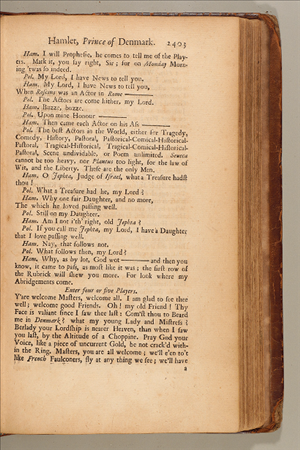 Hamlet, Prince of Denmark. 2403
Ham. I will Prophesie, he comes to tell me of the Play-
ers. Mark it, you say right, Sir; for on Monday Morn-
ing 'twas so indeed.
Pol. My Lord, I have News to tell you.
Ham. My Lord, I have News to tell you,
When Roscius was an Actor in Rome ———
Pol. The Actors are come hither, my Lord.
Ham. Buzze, buzze.
Pol. Upon mine Honour ———
Ham. Then came each Actor on his Ass ———
Pol. The best Actors in the World, either for Tragedy,
Comedy, History, Pastoral, Pastorical-Comical-Historical-
Pastoral, Tragical-Historical, Tragical-Comical-Historical-
Pastoral, Scene undividable, or Poem unlimited. Seneca
cannot be too heavy, nor Plautus too light, for the law of
Wit, and the Liberty. These are the only Men.
Ham. O Jephta, Judge of Israel, what a Treasure hadst
thou?
Pol. What a Treasure had he, my Lord?
Ham. Why one fair Daughter, and no more,
The which he loved passing well.
Pol. Still on my Daughter.
Ham. Am I not i'th' right, old Jephta?
Pol. If you call me Jephta, my Lord, I have a Daughter
that I love passing well.
Ham. Nay, that follows not.
Pol. What follows then, my Lord?
Ham. Why, as by lot, God wot ——— and then you
know, it came to pass, as most like it was; the first row of
the Rubrick will shew you more. For look where my
Abridgements come.
Enter four or five Players.
Y'are welcome Masters, welcome all. I am glad to see thee
well; welcome good Friends. Oh! my old Friend! Thy
Face is valiant since I saw thee last: Com'st thou to Beard
me in Denmark? what my young Lady and Mistress?
Berlady your Lordship is nearer Heaven, than when I saw
you last, by the Altitude of a Choppine. Pray God your
Voice, like a piece of uncurrent Gold, be not crack'd with-
in the Ring. Masters, you are all welcome; we'll e'en to't
like French Faulconers, fly at any thing we see; we'll have
a